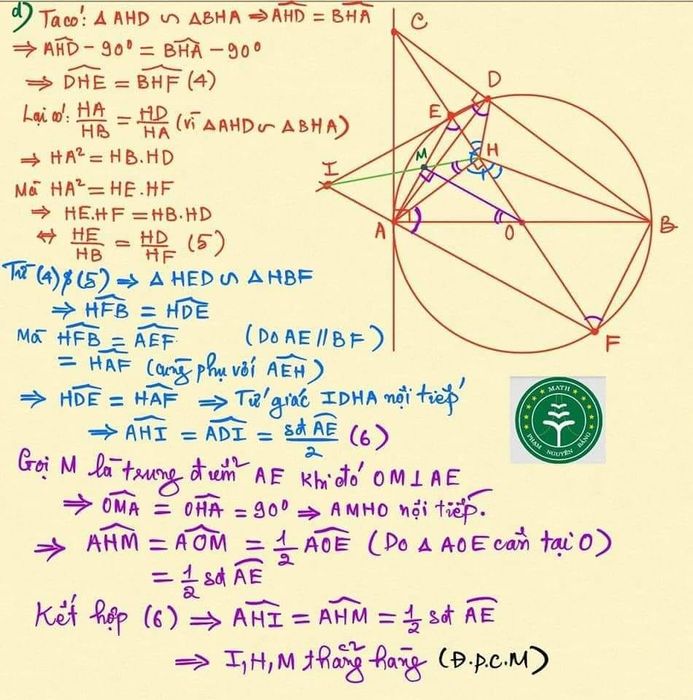 d) Ta có: △AHD ∽ △BHA ⇒ \widehat{AHD} = \widehat{BHA}
⇒ \widehat{AHD} - 90° = \widehat{BHA} - 90°
⇒ \widehat{DHE} = \widehat{BHF} (4)
Lại có: HA/HB = HD/HA (vì △AHD ∽ △BHA)
⇒ HA² = HB.HD
Mà HA² = HE.HF
⇒ HE.HF = HB.HD
⇔ HE/HB = HD/HF (5)
Từ (4) & (5) ⇒ △HED ∽ △HBF
⇒ \widehat{HFB} = \widehat{HDE}
Mà \widehat{HFB} = \widehat{AEF} (Do AE // BF)
= \widehat{HAF} (cùng phụ với \widehat{AEH})
⇒ \widehat{HDE} = \widehat{HAF} ⇒ Tứ giác IDHA nội tiếp
⇒ \widehat{AHI} = \widehat{ADI} = sđ\widehat{AE}/2 (6)
Gọi M là trung điểm AE khi đó OM ⊥ AE
⇒ \widehat{OMA} = \widehat{OHA} = 90° ⇒ AMHO nội tiếp.
⇒ \widehat{AHM} = \widehat{AOM} = 1/2 \widehat{AOE} (Do △AOE cân tại O)
= 1/2 sđ \widehat{AE}
Kết hợp (6) ⇒ \widehat{AHI} = \widehat{AHM} = 1/2 sđ \widehat{AE}
⇒ I, H, M thẳng hàng (Đ.p.c.M)
C
D
E
H
M
I
A
O
B
F
MATH
PHẠM NGUYÊN BẰNG